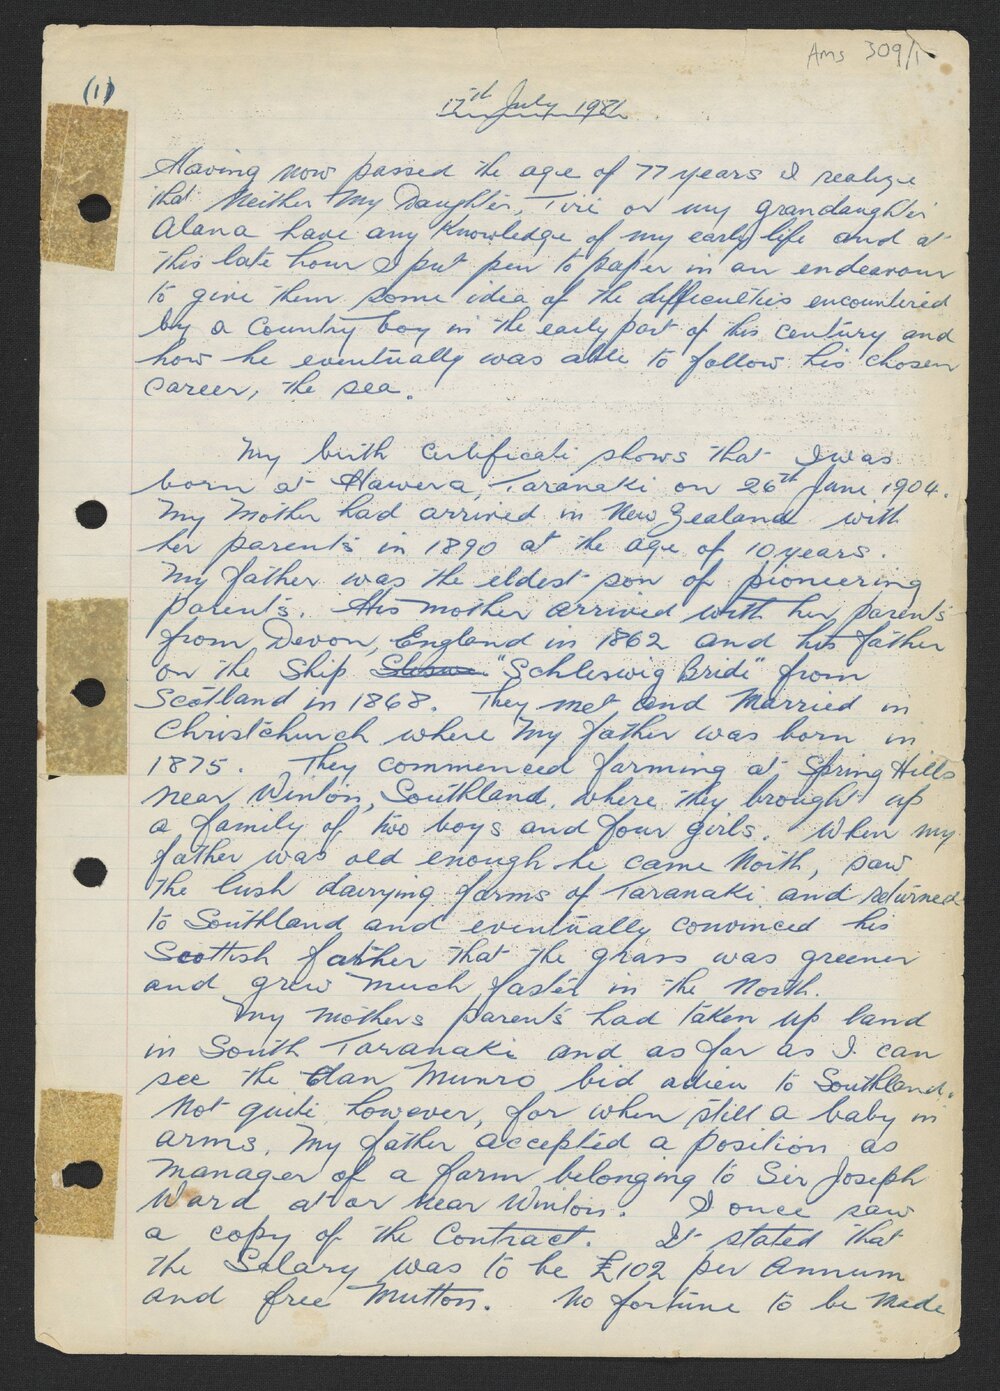 Ams 309/1
(1)
17th July 1981
Having now passed the age of 77 years I realize
that Neither My Daughter, Tiri or my grandaughter
Alana have any Knowledge of my early life and at
this late hour I put pen to paper in an endeavour
to give them some idea of the difficulties encountered
by a Country boy in the early part of this century and
how he eventually was able to follow his chosen
career, the sea.
My birth Certificate shows that I was
born at Hawera, Taranaki on 26th June 1904.
My Mother had arrived in New Zealand with
her parents in 1890 at the age of 10 years.
My father was the eldest son of pioneering
parents. His mother arrived with her parents
from Devon, England in 1862 and his father
on the Ship "Schleswig Bride" from
Scotland in 1868. They met and Married in
Christchurch where My father was born in
1875. They commenced farming at Spring Hills
near Winton, Southland, where they brought up
a family of two boys and four girls. When my
father was old enough he came North, saw
the lush dairying farms of Taranaki and returned
to Southland and eventually convinced his
Scottish father that the grass was greener
and grew much faster in the North.
My Mothers parents had taken up land
in South Taranaki and as far as I can
see the Clan Munro bid adieu to Southland.
Not quite however, for when still a baby in
arms, My father accepted a position as
Manager of a farm belonging to Sir Joseph
Ward at or near Winton. I once saw
a copy of the Contract. It stated that
the Salary was to be £102 per Annum
and free Mutton. No fortune to be Made